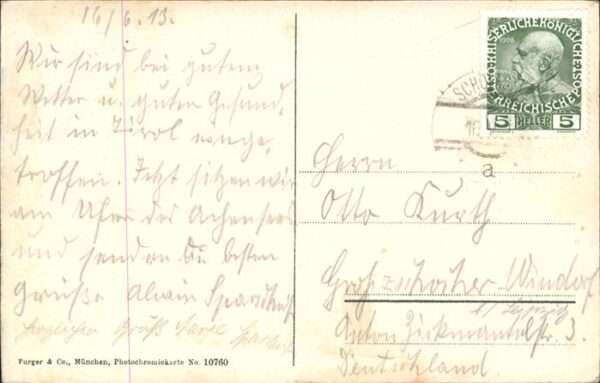 16/6.13.
Wir sind bei gutem
Wetter u. guten Gesund-
heit in Tirol einge-
troffen. Jetzt sitzen wir
am Ufer des Achensees
und senden Dir besten
Grüße
Gruß
Furger & Co., München, Photochromiekarte No. 10760
KAISERLICHEKÖNIGLICHE
ÖSTERREICHISCHE
1908
5 HELLER 5
SCHO
a
Herrn
Otto Kurth
Großzschocher Windorf
b/ Leipzig
Anton Zickmantelstr. 3.
Deutschland.